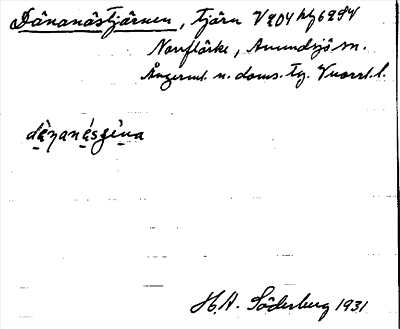 Dånanästjärnen, tjärn V204 hg 6284
Norrflärke, Anundsjö sn.
Ångerml. n. doms. Tg. Vuorrt. l.
då̀ŋanä́sʒɛ̀ṇa
H.A. Söderberg 1931